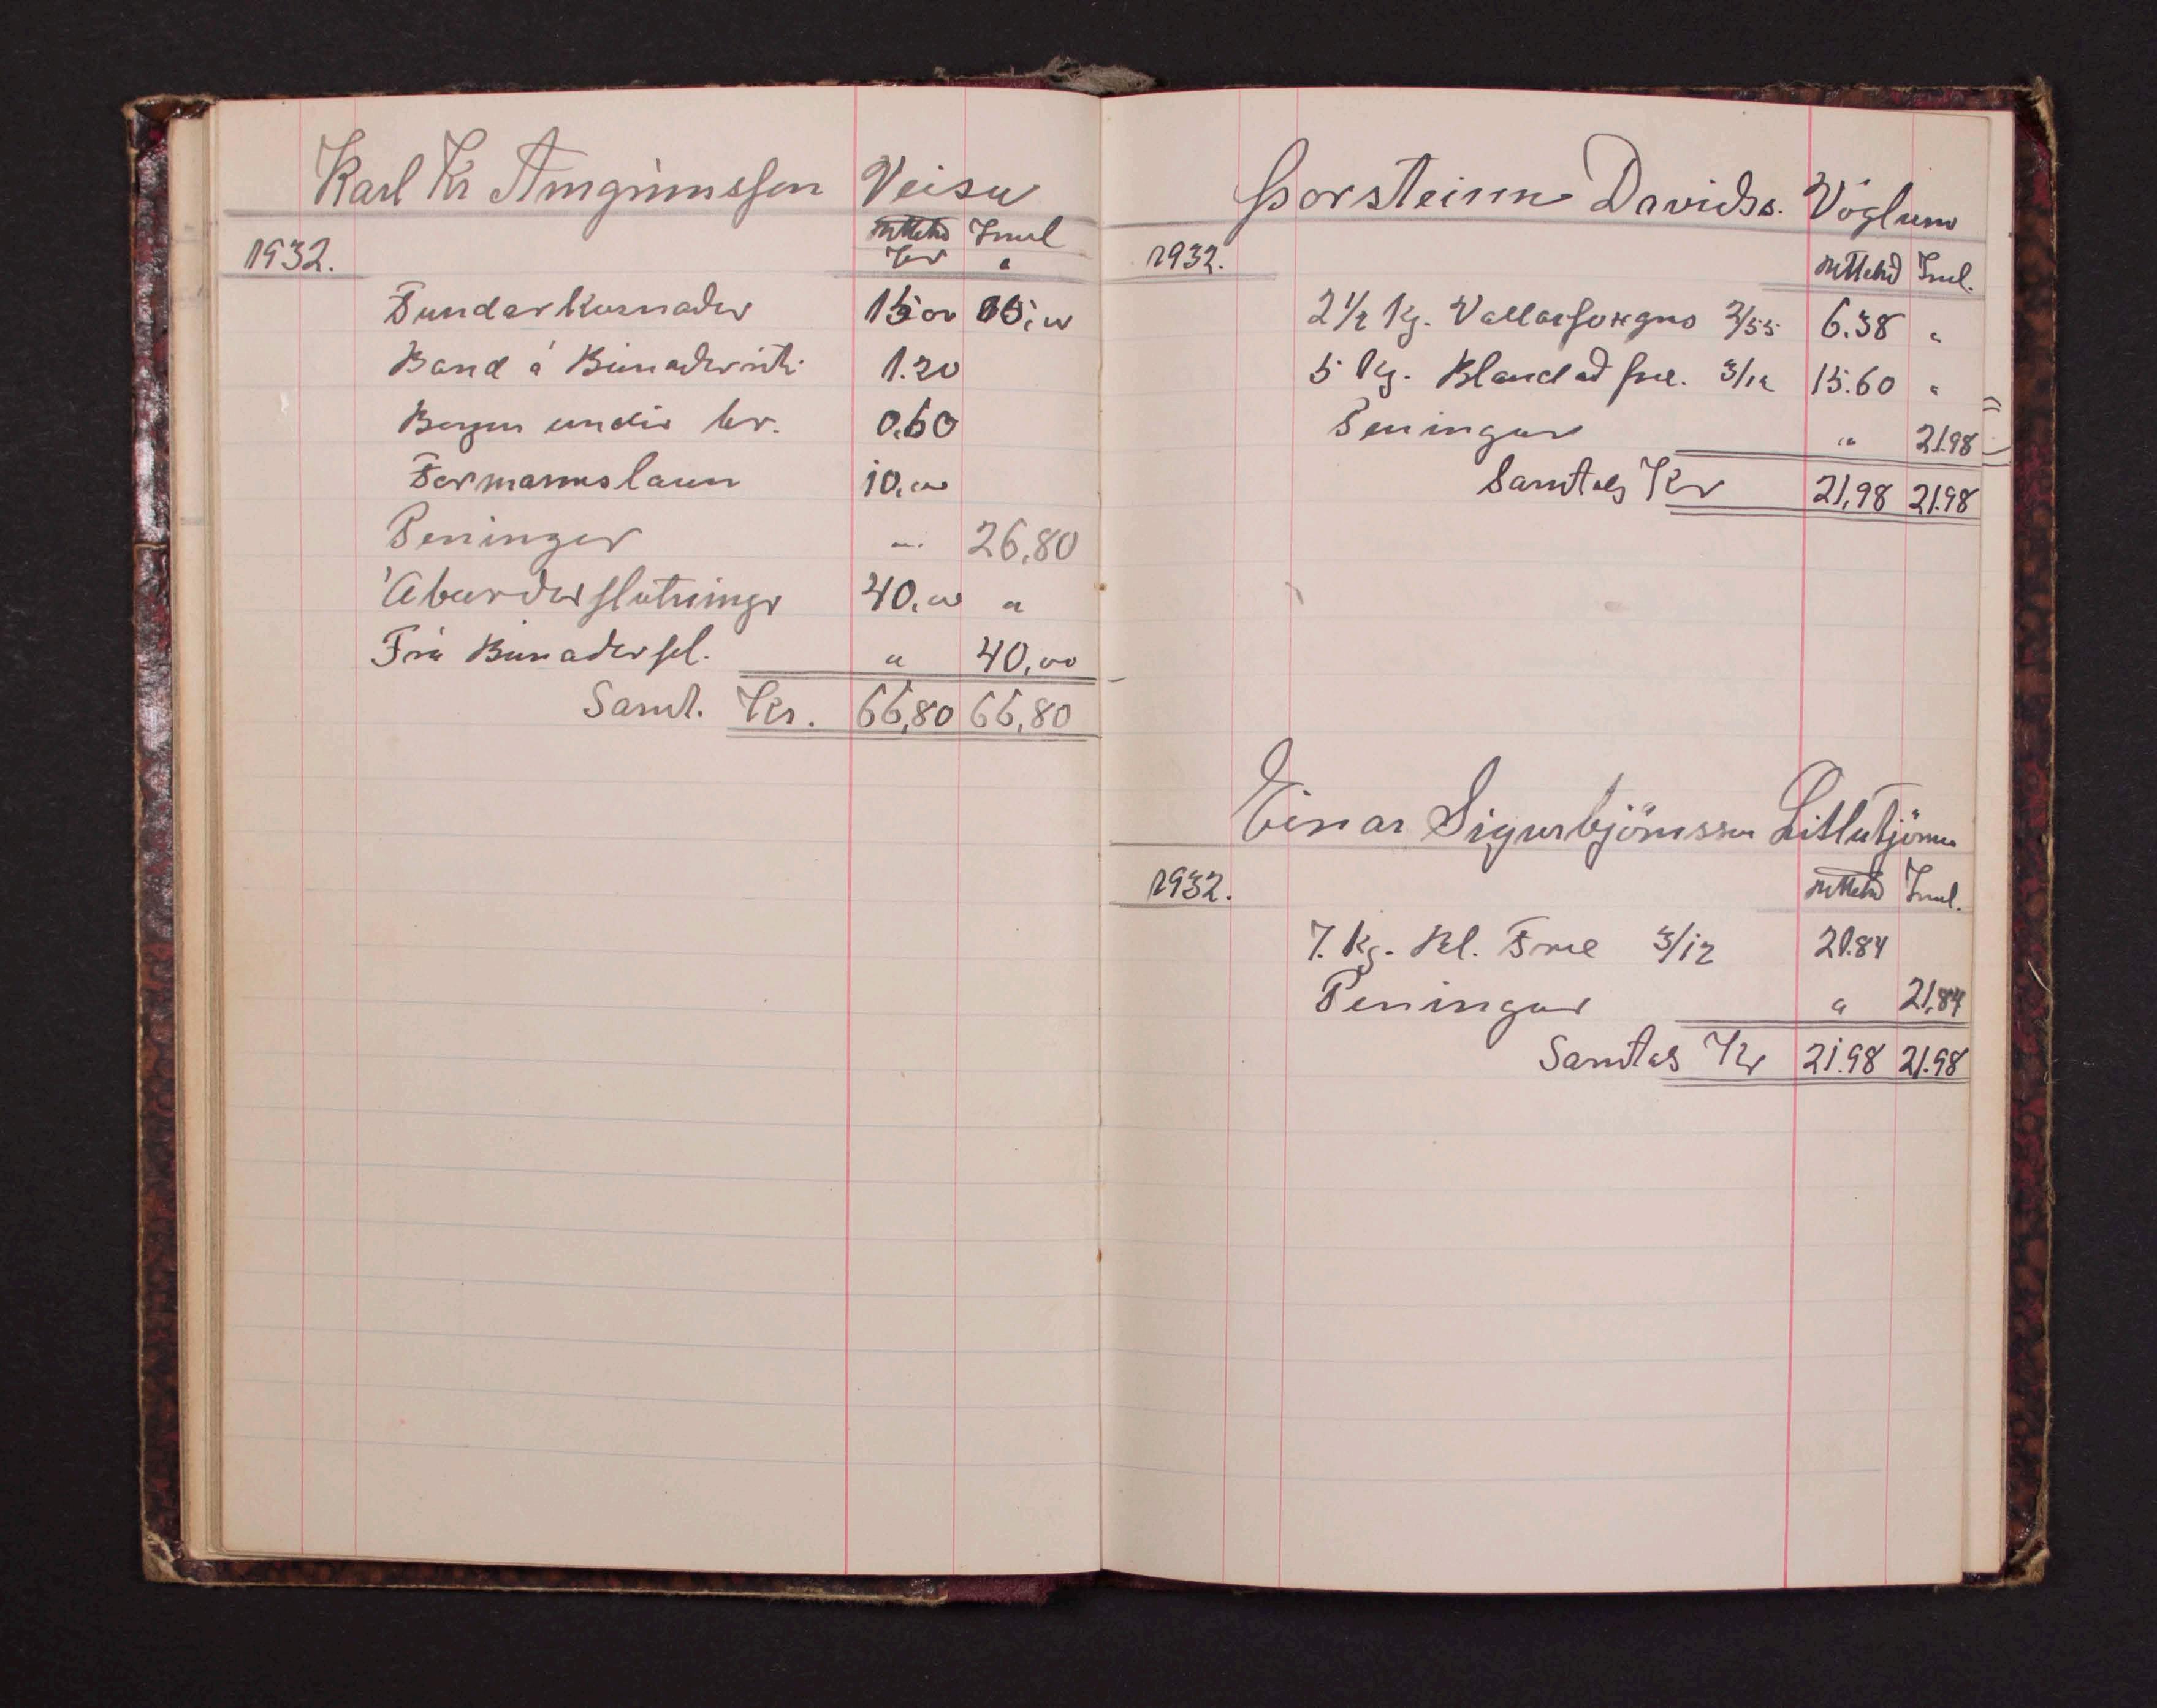 Karl Kr Arngrímsson Veisu
úttekið Innl
1932. Kr "
Fundarkosnaður 15 00 15,00
Band á Búnaðarriti 1.20
undir 0.60
Formannslaun 10,00
Peningar " 26,80
Áburðarflutningr 40,00 "
Frá Búnaðarfél. " 40,00
Samt. Kr. 66,80 66,80
Þorsteinn Davidss. Vöglum
1932. úttekið Innl.
2 1/2 kg. Vallarfoxgras 2/55 6.38 "
5 kg. Blandað fræ. 3/12 15.60 "
Peningar " 21.98
Samtals Kr 21,98 21.98
Einar Sigurbjörnsson Litlutjörnum
1932. úttekið Innl.
7. kg. Bl. Fræ 3/12 21.84
Peningar " 21,84
Samtals Kr 21.98 21.98